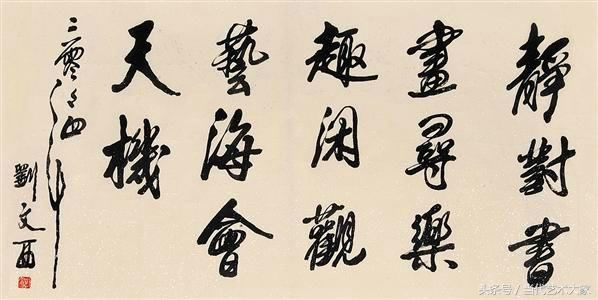 靜對書
畫尋樂
趣闲觀
藝海會
天機
二零零四年
劉文西
头条号 / 当代艺术大家